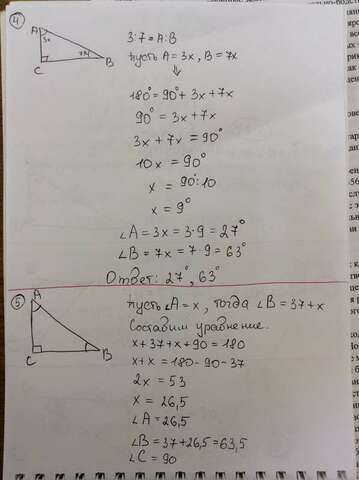 4
A
3x
C
7x
B
3:7 = A:B
Пусть A = 3x, B = 7x
⇓
180° = 90° + 3x + 7x
90° = 3x + 7x
3x + 7x = 90°
10x = 90°
x = 90°:10
x = 9°
∠A = 3x = 3·9 = 27°
∠B = 7x = 7·9 = 63°
Ответ: 27°, 63°
5
A
C
B
Пусть ∠A = x, тогда ∠B = 37 + x
Составим уравнение.
x + 37 + x + 90 = 180
x + x = 180 - 90 - 37
2x = 53
x = 26,5
∠A = 26,5
∠B = 37 + 26,5 = 63,5
∠C = 90